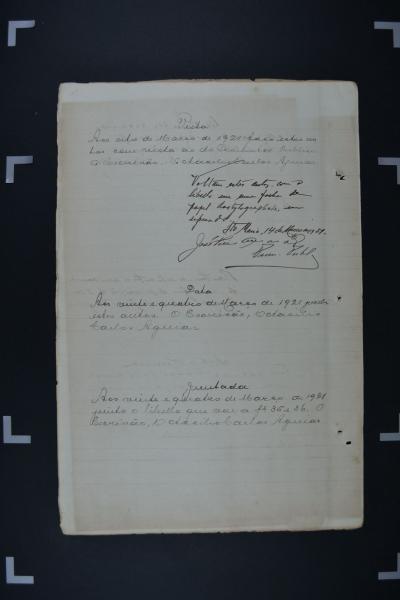 Vista
Aos oito de Março de 1921 faço estes au
tos com vista ao dr Promotor Publico
O Escrivão, Octacilio Carlos Aguiar
Voltam estes autos com o
libello em uma folha de
papel dactylographada, em
separado.
Sta Maria, 14 de Março 1921.
Prom. Publ.
Data
Aos vinte e quatro de Março de 1921 recebi
estes autos. O Escrivão, Octacilio
Carlos Aguiar
Juntada
Aos vinte e quatro de Março de 1921
junto o libello que vae a fs 35 e 36. O
Escrivão, Octacilio Carlos Aguiar